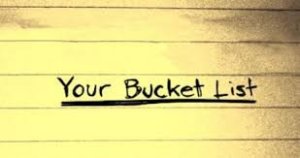 Your Bucket List